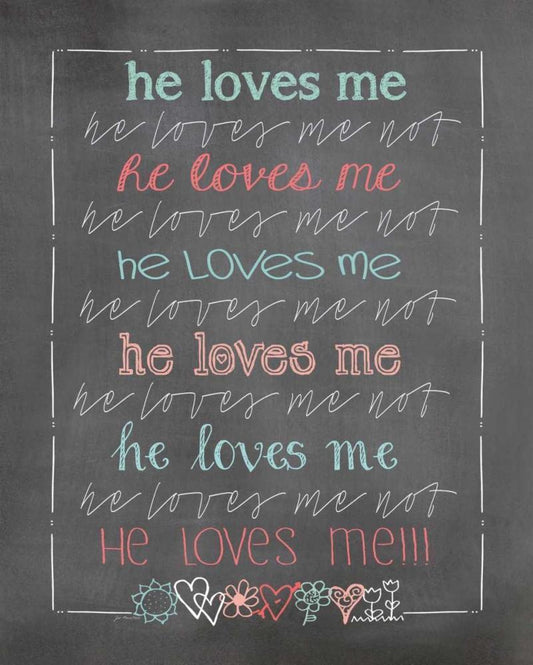 he loves me
he loves me not
he loves me
he loves me not
he LOVES me
he loves me not
he loves me
he loves me not
he loves me
he loves me not
HE LOVES ME!!!